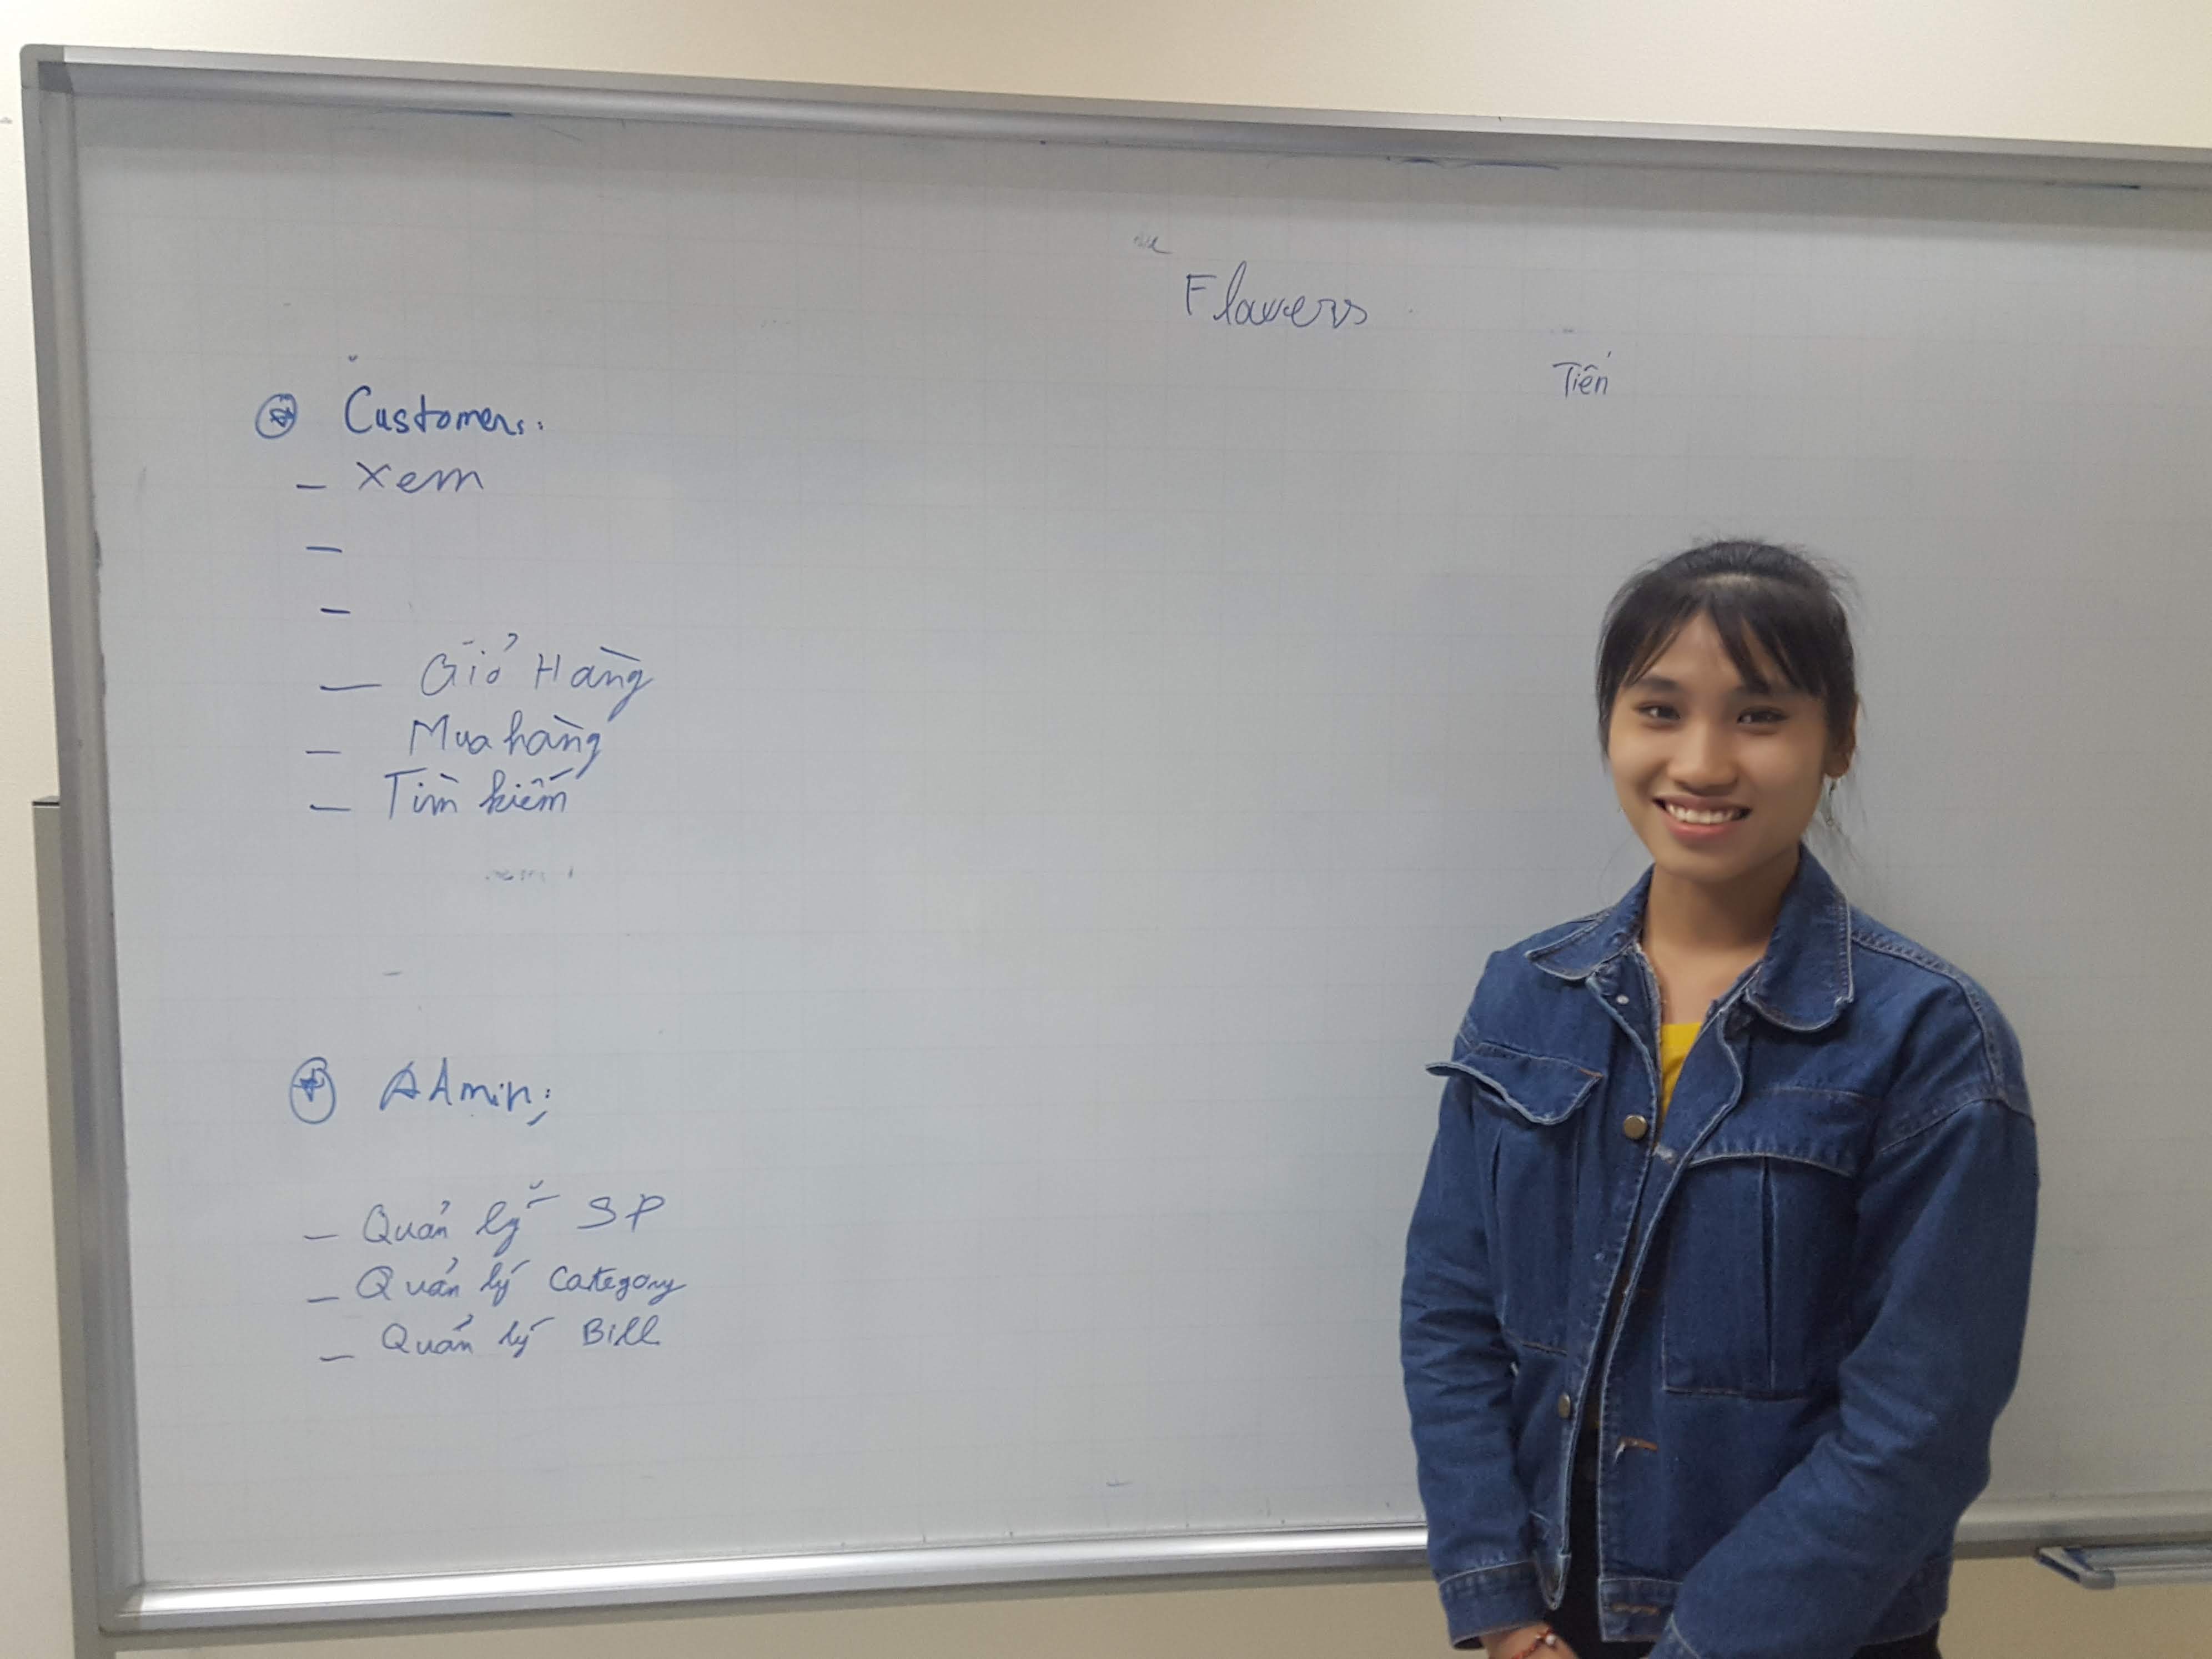 Flowers
Tiến
Customers:
- Xem
-
-
- Giỏ Hàng
- Mua hàng
- Tìm kiếm
Admin:
- Quản lý SP
- Quản lý Category
- Quản lý Bill